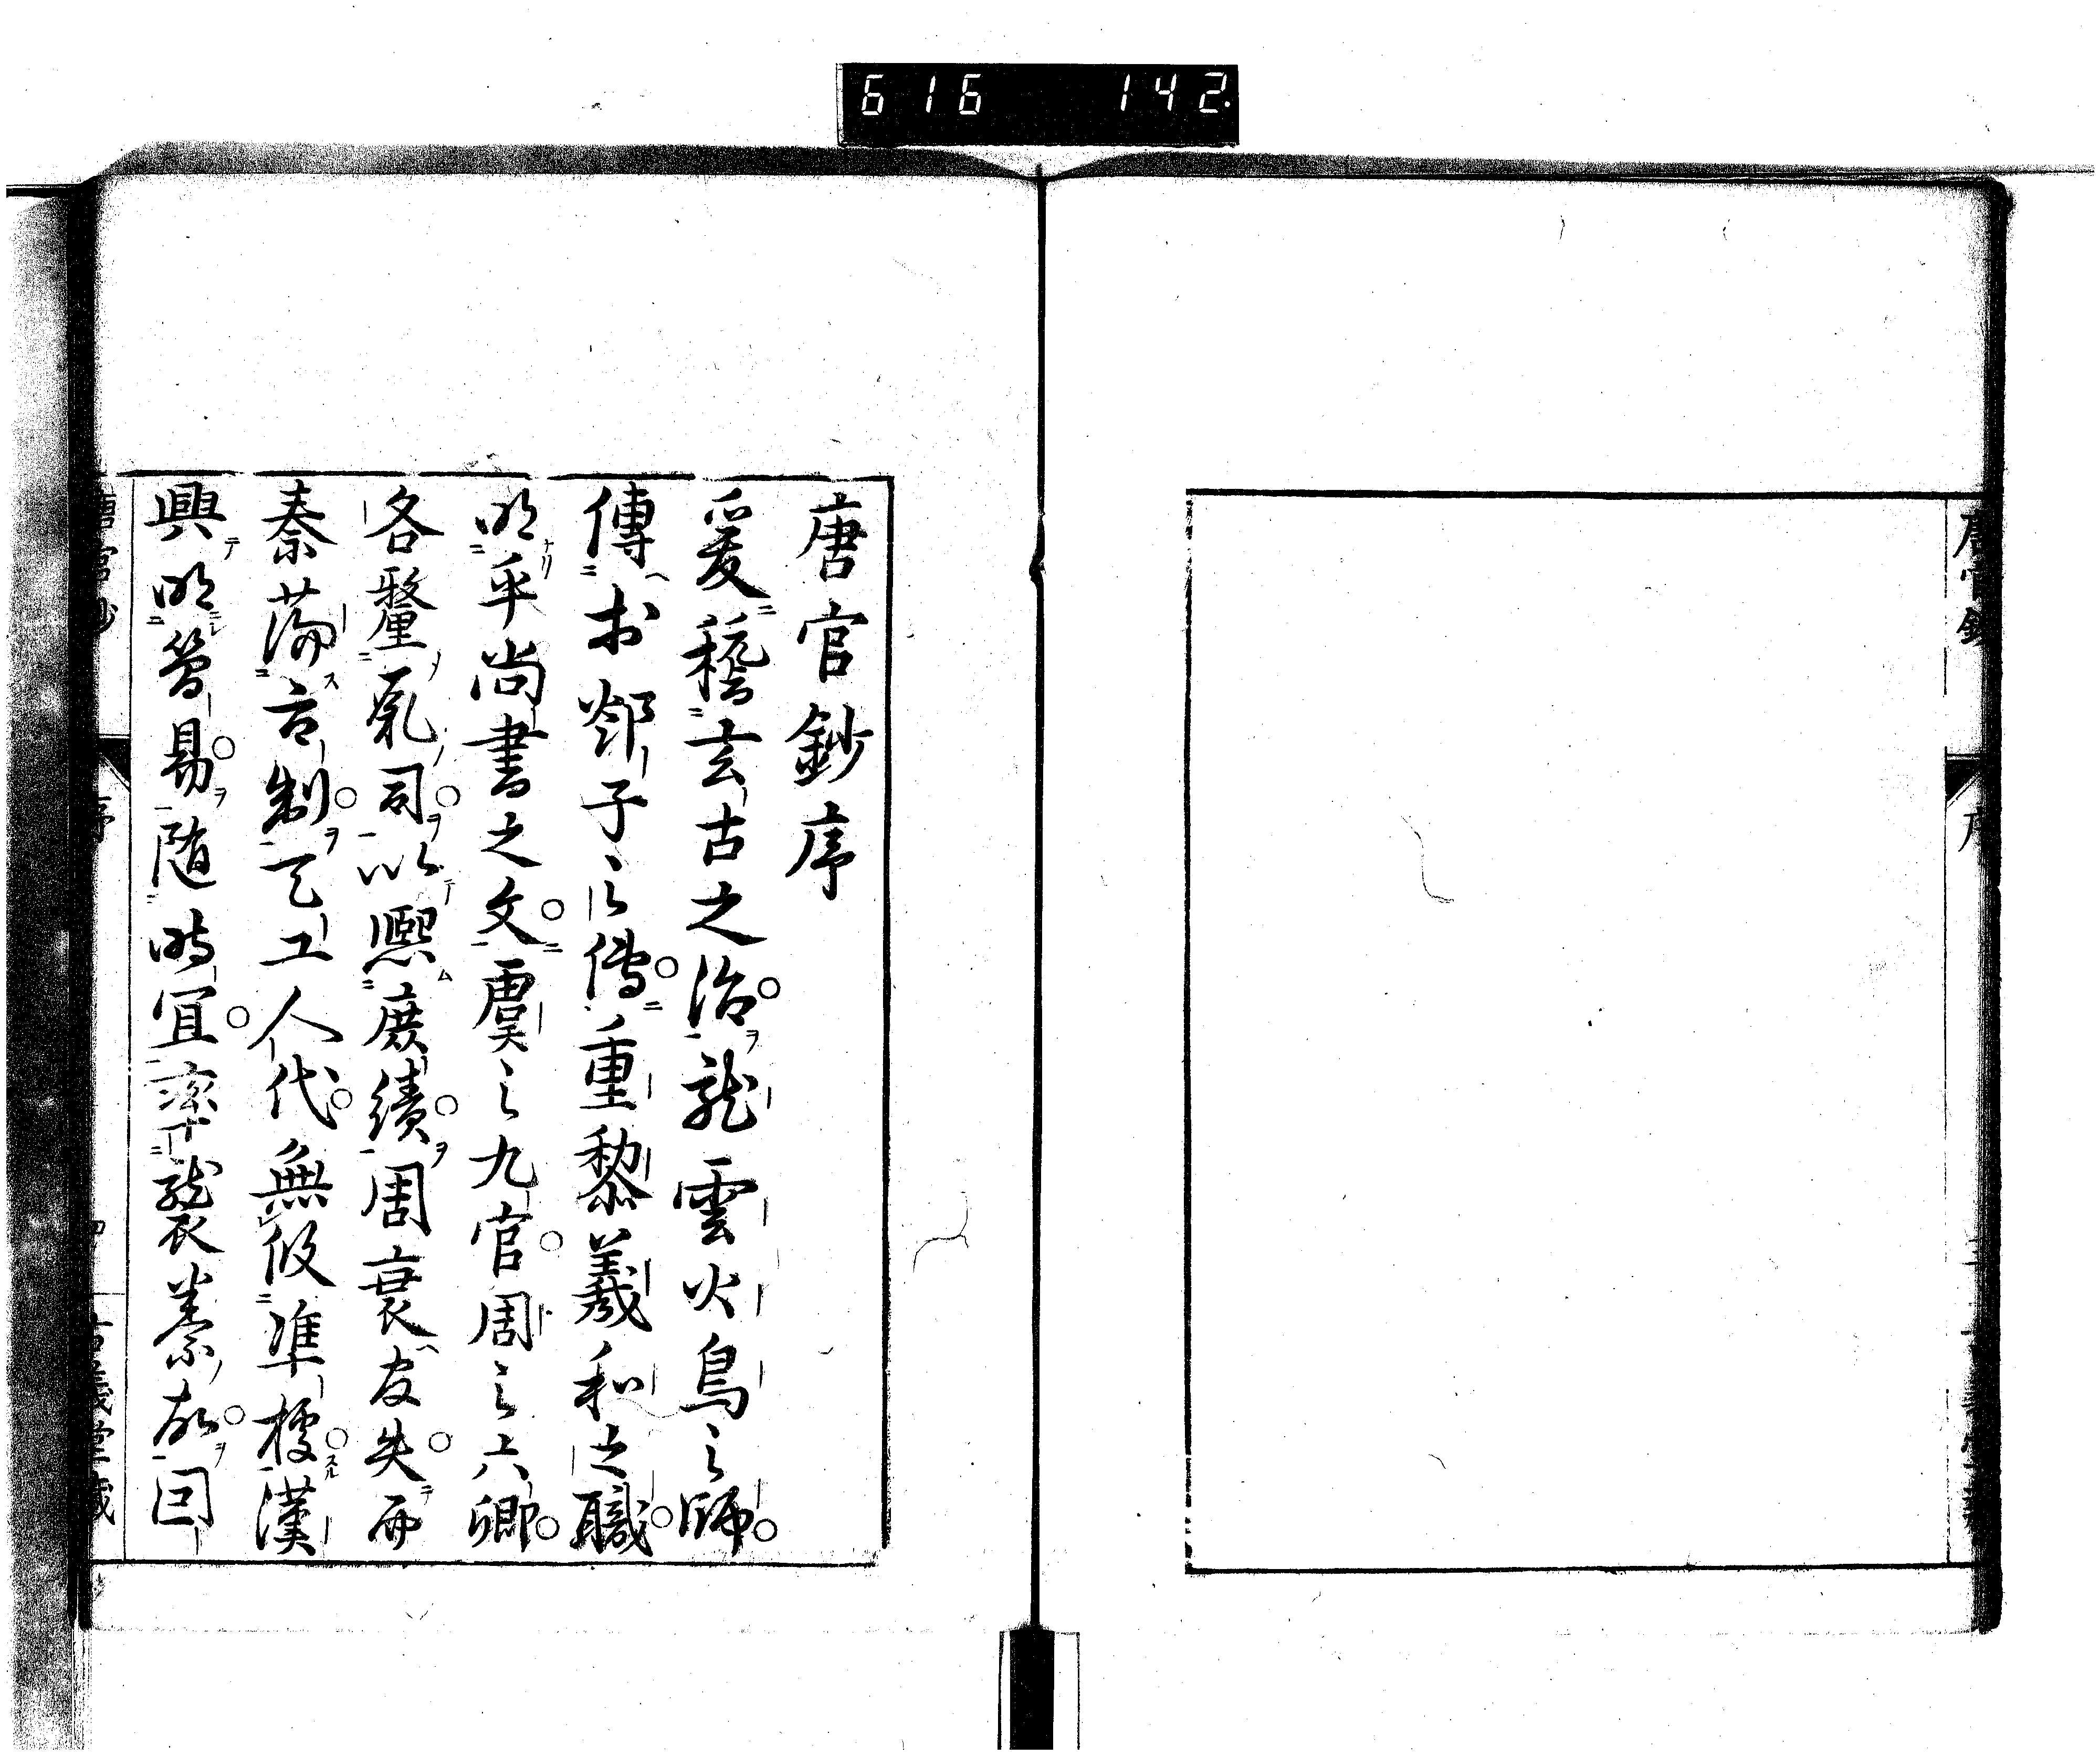 616 142
唐官鈔 序
唐官鈔序
爰稽玄古之治龍雲火鳥之師
傳於郯子之傳重黎羲和之職
明乎尚書之文虞之九官周之六卿
各釐厥司以熙庶績周衰官失而
秦蕩古制天工人代無攸準據漢
興明簡易随時宜率襲秦故因
唐官鈔 序 古義堂蔵